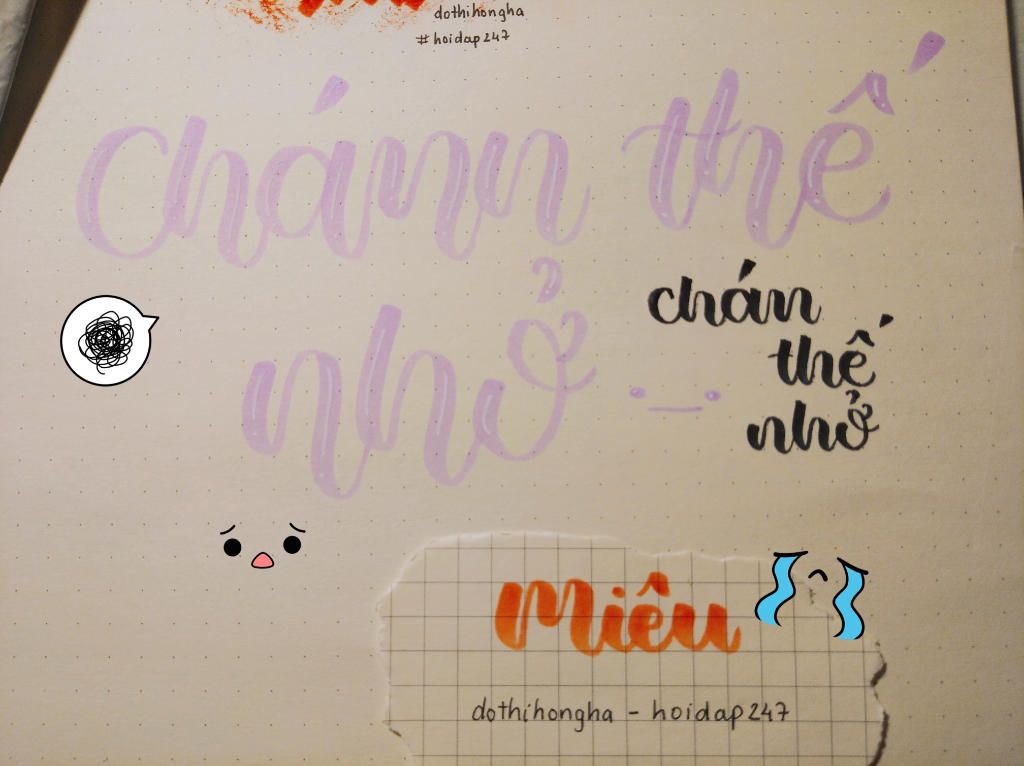 dothihongha
#hoidap247
chánn thế
nhở ·_·
chán
thế
nhở
Miêu
dothihongha - hoidap247